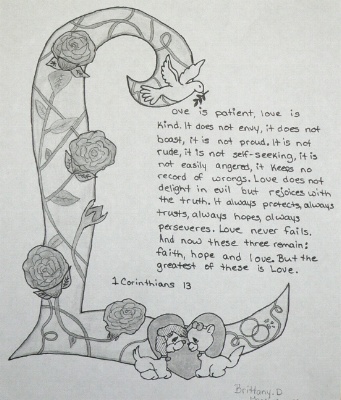 Love is patient, love is
kind. It does not envy, it does not
boast, it is not proud. It is not
rude, it is not self-seeking, it is
not easily angered, it keeps no
record of wrongs. Love does not
delight in evil but rejoices with
the truth. It always protects, always
trusts, always hopes, always
perseveres. Love never fails.
And now these three remain:
faith, hope and love. But the
greatest of these is Love.
1 Corinthians 13
Brittany. D